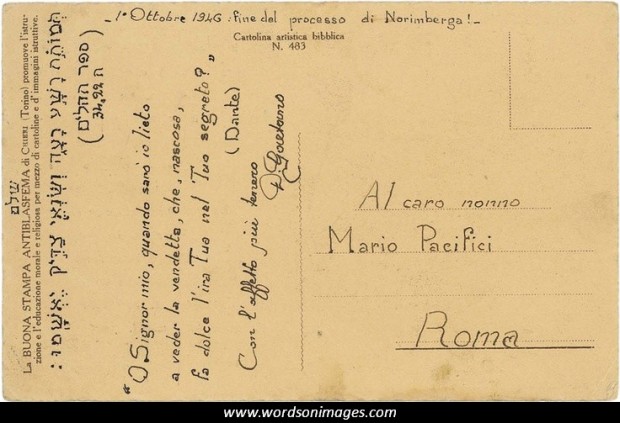 - 1° Ottobre 1946: fine del processo di Norimberga! -
Cartolina artistica bibblica
N. 483
La BUONA STAMPA ANTIBLASFEMA di CHIERI (Torino) promuove l'istru-
zione e l'educazione morale e religiosa per mezzo di cartoline e d'immagini istruttive.
שלום
תמותת רשע רעה ושנאי צדיק יאשמו:
(ספר תהלים
34,22 ה)
"O Signor mio, quando sarò io lieto
a veder la vendetta, che, nascosa,
fa dolce l'ira Tua nel Tuo segreto?"
(Dante)
Con l'affetto più tenero
Gaetano
Al caro nonno
Mario Pacifici
Roma
www.wordsonimages.com